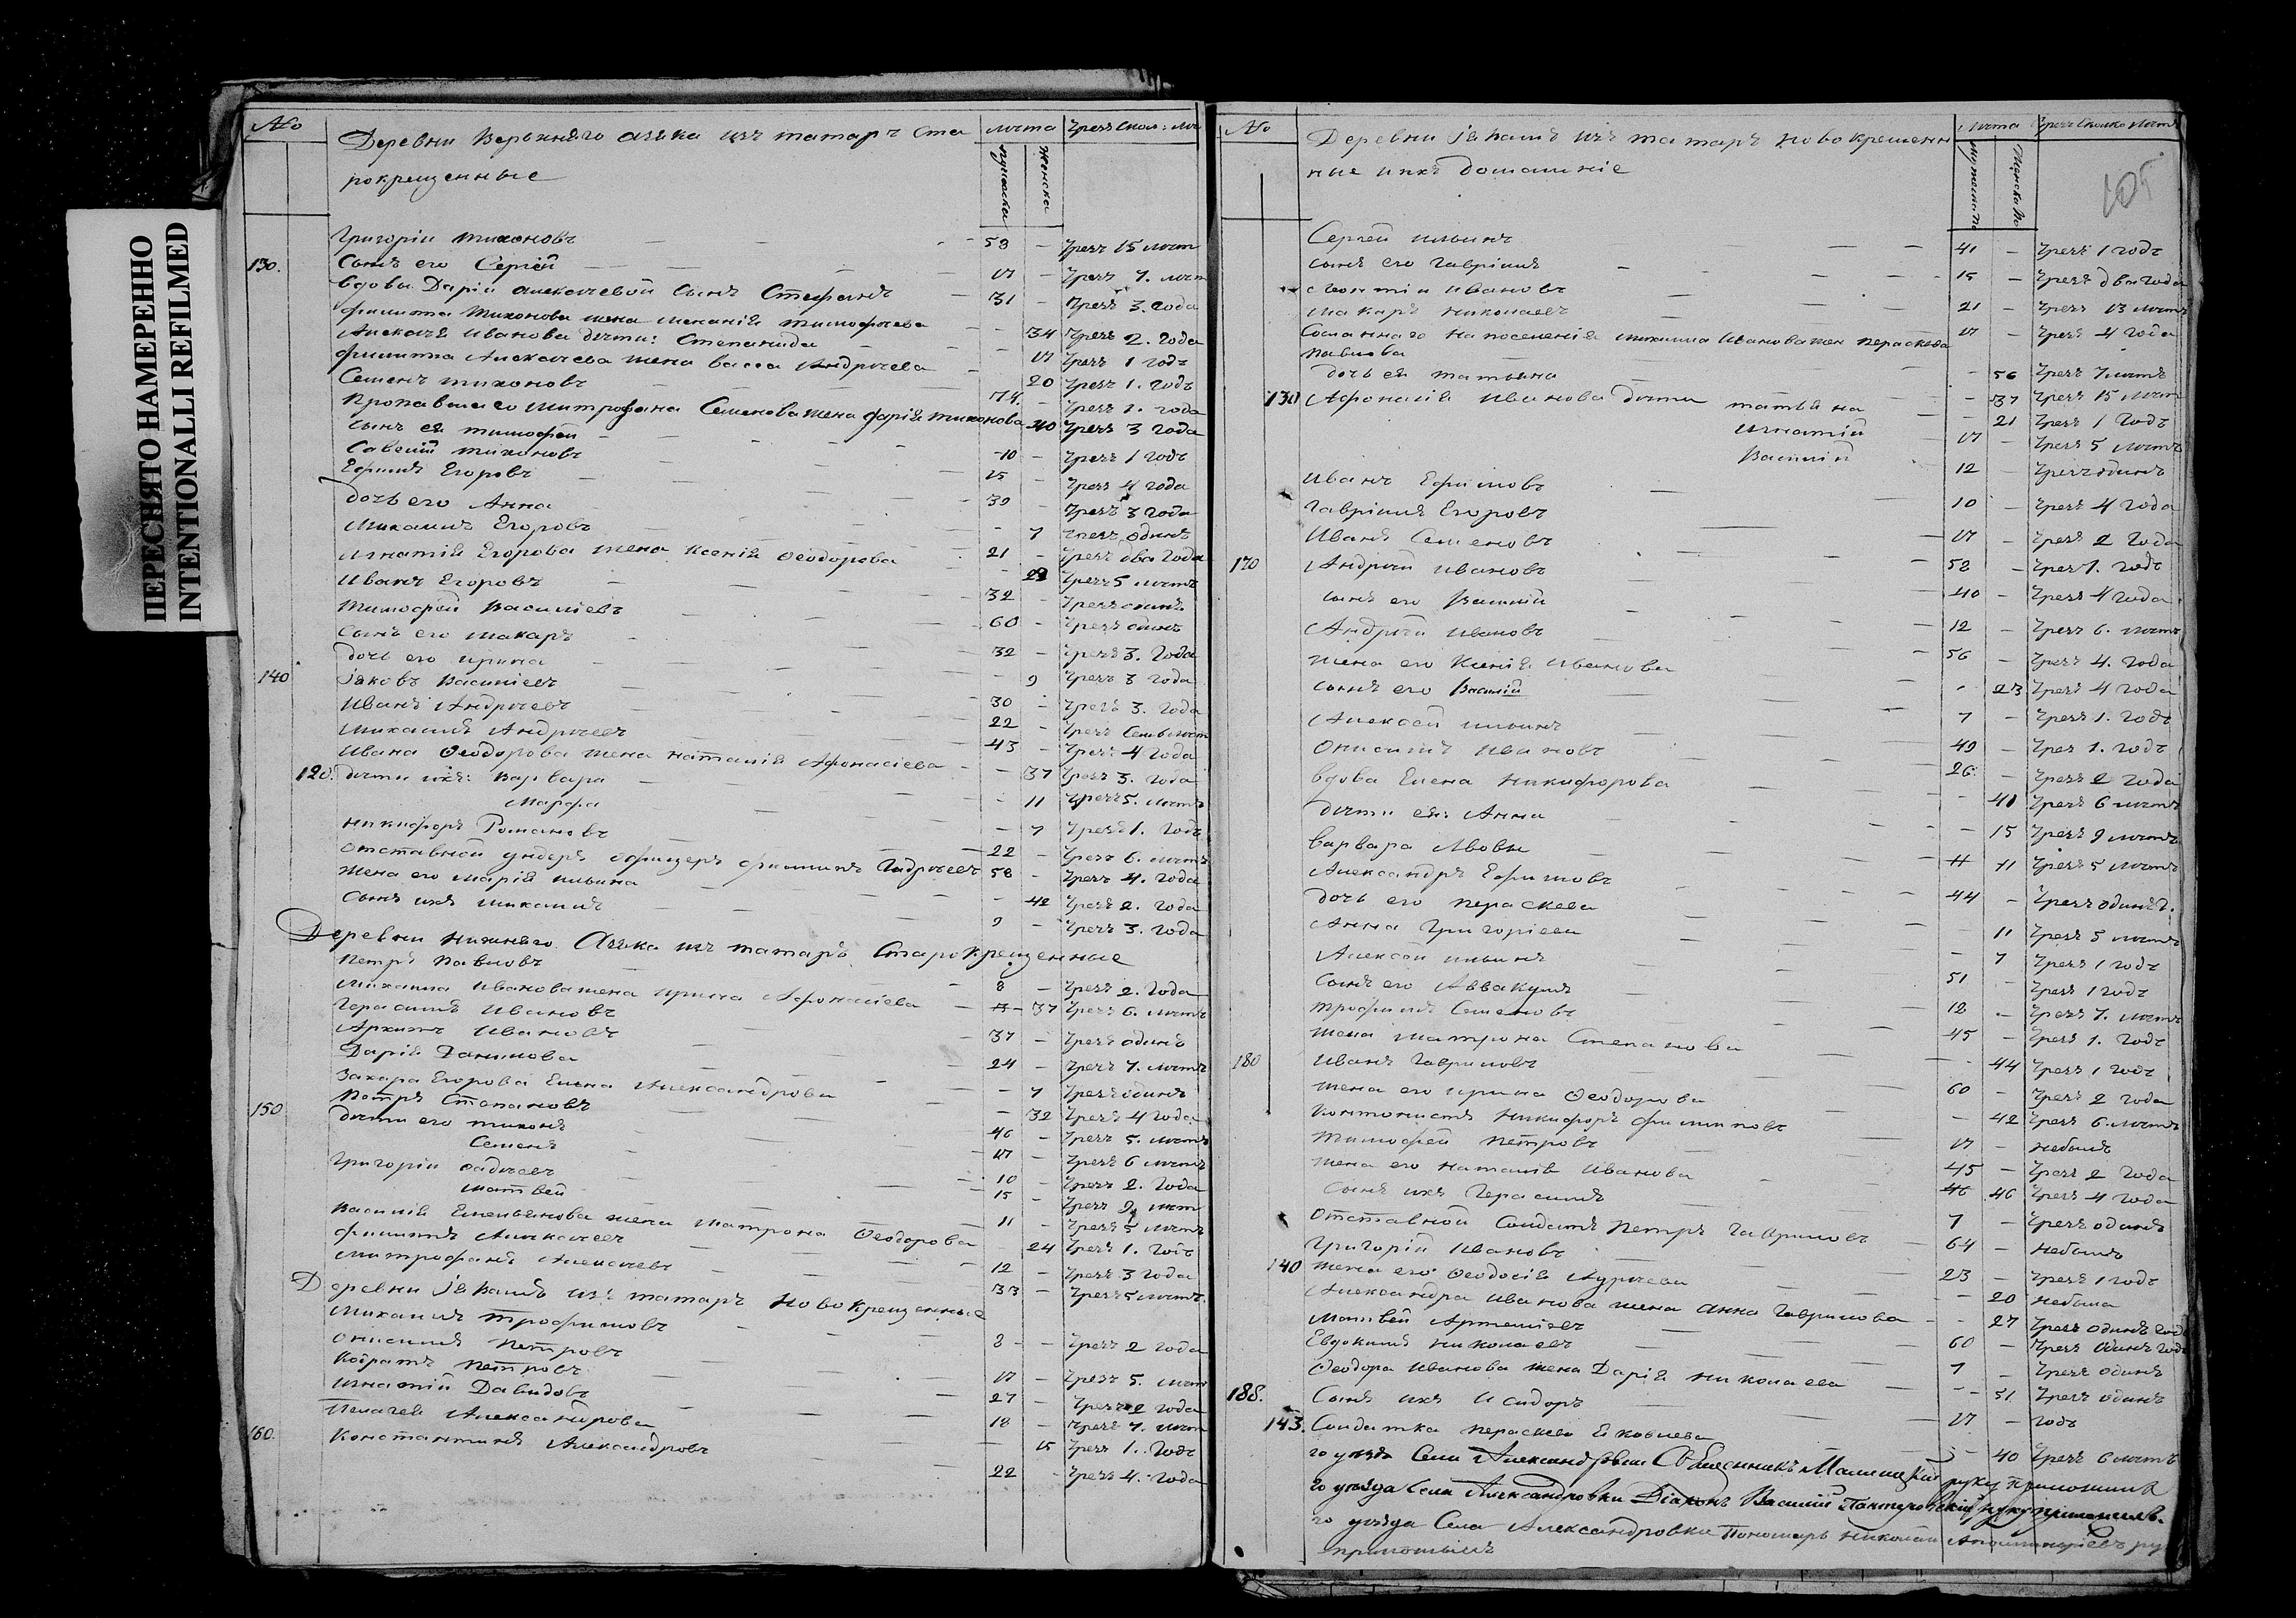 ПЕРЕСНЯТО НАМЕРЕННО
INTENTIONALLI REFILMED
№ Деревни Верхняго Азяка изъ татаръ ста лѣта Чрезъ скол: лѣт
рокрещенные
мужеска женска
Григорій Тихоновъ 58 – Чрезъ 15 лѣт
130. Сынъ его Сергѣй 17 – Чрезъ 7. лѣт
Вдовы Даріи Алексѣевой сынъ Стефанъ 31 – Чрезъ 3. года
Филиппа Тихонова жена Меланія Тимофѣева – 34 Чрезъ 2. года
Алексѣя Иванова дѣти: Степанида – 17 Чрезъ 1 годъ
Филиппа Алексѣева жена Васса Андрѣева – 20 Чрезъ 1. годъ
Семенъ Тихоновъ 74. – Чрезъ 1. года
Пропавшаго Митрофана Семенова жена Дарія Тихонова – 40 Чрезъ 3 года
Сынъ ея Тимофей 10 – Чрезъ 1 годъ
Савелій Тихоновъ 15 – Чрезъ 4 года
Ефимъ Егоровъ 39 – Чрезъ 3 года
Дочь его Анна – 7 Чрезъ одинъ
Михаилъ Егоровъ 21 – Чрезъ два года
Игнатія Егорова жена Ксенія Ѳеодорова – 29 Чрезъ 5 лѣтъ
Иванъ Егоровъ 32 – Чрезъ одинъ
Тимофей Васильевъ 60 – Чрезъ одинъ
Сынъ его Макаръ 32 – Чрезъ 3. года
Дочь его Ирина – 9 Чрезъ 3 года
140 Іаковъ Васильевъ 30 – Чрезъ 3. года
Иванъ Андрѣевъ 22 – Чрезъ семь лѣт
Михаилъ Андрѣевъ 43 – Чрезъ 4 года
Ивана Ѳеодорова жена Наталія Афонасіева – 37 Чрезъ 3. года
120. Дѣти ихъ: Варвара – 11 Чрезъ 5. лѣтъ
Марфа – 7 Чрезъ 1. годъ
Никифоръ Романовъ 22 – Чрезъ 6. лѣтъ
Отставной ундеръ офицеръ Филиппъ 58 – Чрезъ 4. года
Жена его Марія Ильина – 42 Чрезъ 2. года
Сынъ ихъ Михаилъ 9 – Чрезъ 3. года
Деревни Нижняго Азяка изъ татаръ Старокрещенные
Петръ Павловъ 8 – Чрезъ 2. года
Михаила Иванова жена Ирина Афонасіева – 37 Чрезъ 6. лѣтъ
Герасимъ Ивановъ 37 – Чрезъ одинъ
Архипъ Ивановъ 24 – Чрезъ 7. лѣтъ
Дарія Данилова – 7 Чрезъ одинъ
Захара Егорова Елена Александрова – 32 Чрезъ 4 года
150 Петръ Степановъ 46 – Чрезъ 5. лѣтъ
Дѣти его Тихонъ 17 – Чрезъ 6 лѣтъ
Семенъ 10 – Чрезъ 2. года
Григорій 15 – Чрезъ 9. лѣт
Матвей 11 – Чрезъ 5 лѣтъ
Василія Емельянова жена Матрона Ѳеодорова – 24 Чрезъ 1. годъ
Филиппъ Алексѣевъ 12 – Чрезъ 3 года
Митрофанъ Алексѣевъ 33 – Чрезъ 5 лѣтъ
Деревни изъ татаръ новокрещенные
Михаилъ Трофимовъ 8 – Чрезъ 2 года
Онисимъ Петровъ 17 – Чрезъ 5. лѣтъ
Кодратъ Петровъ 27 – Чрезъ 2 года
Игнатій Давидовъ 18 – Чрезъ 7. лѣт
Пелагея Александрова – 15 Чрезъ 1. годъ
160. Константинъ Александровъ 22 – Чрезъ 4. года
№ Деревни изъ татаръ новокрещен лѣта Чрезъ сколко лѣтъ
ные ихъ домашніе
105
Сергей Ильинъ 41 – Чрезъ 1 годъ
Сынъ его Гавріилъ 15 – Чрезъ два года
Леонтій Ивановъ 21 – Чрезъ 13 лѣтъ
Макаръ Николаевъ 17 – Чрезъ 4 года
Сосланнаго на поселенія Михаила Иванова жен Пераскева
Павлова – 56 Чрезъ 7 лѣтъ
Дочь ея Татьяна – 37 Чрезъ 15 лѣт
130 Афонасія Иванова дѣти Татьяна – 21 Чрезъ 1 годъ
Игнатій 17 – Чрезъ 5 лѣтъ
Василій 12 – Чрезъ одинъ
Иванъ Ефимовъ 10 – Чрезъ 4 года
Гавріилъ Егоровъ 17 – Чрезъ 2 года
Иванъ Семеновъ 52 – Чрез 1. годъ
170 Андрѣй Ивановъ 40 – Чрезъ 4 года
Сынъ его Василій 12 – Чрезъ 6. лѣтъ
Андрѣй Ивановъ 56 – Чрезъ 4. года
Жена его Ксенія Иванова – 23 Чрезъ 4 года
Сынъ его Василій 7 – Чрезъ 1. годъ
Алексей Ильинъ 49 – Чрез 1. годъ
Онисимъ Ивановъ 26 – Чрезъ 2 года
Вдова Елена Никифорова – 41 Чрезъ 6 лѣтъ
Дѣти ея: Анна – 15 Чрезъ 9 лѣтъ
Варвара Львовы – 11 Чрезъ 5 лѣтъ
Александръ Ефимовъ 44 – Чрезъ одинъ г.
Дочь его Пераскева – 11 Чрезъ 5 лѣтъ
Анна Григоріева – 7 Чрезъ 1 годъ
Алексей Ильинъ 51 – Чрезъ 1 годъ
Сынъ его Аввакумъ 12 – Чрезъ 7. лѣтъ
Трофимъ Семеновъ 45 – Чрезъ 1. годъ
Жена Матрона Степанова – 44 Чрезъ 1 годъ
180 Иванъ Гавриловъ 60 – Чрезъ 2 года
Жена его Ирина Ѳеодорова – 42 Чрезъ 6. лѣтъ
Контонистъ Никифоръ Филиповъ 17 – небылъ
Тимофей Петровъ 45 – Чрезъ 2 года
Жена его Наталія Иванова 46 46 Чрезъ 4 года
Сынъ ихъ Герасимъ 7 – Чрезъ одинъ
Отставной Солдатъ Петръ Гавриловъ 64 – небылъ
Григорій Ивановъ 23 – Чрезъ 1 годъ
140 Жена его Ѳеодосія – 20 небыла
Александра Иванова жена Анна Гаврилова – 27 Чрезъ одинъ годъ
Матвей Артеміевъ 60 – Чрезъ одинъ годъ
Евдокимъ Николаевъ 7 – Чрезъ одинъ
Ѳеодора Иванова жена Дарія Николаева – 51 Чрезъ одинъ
188. Сынъ ихъ Исидоръ 17 – годъ
143. Солдатка Пераскева – 40 Чрезъ 6 лѣтъ
го уезда Села Александровки Священникъ руку приложилъ
го уѣзда Села Александровки Діаконъ Василій руку приложилъ.
го уѣзда Села Александровки Пономарь Николай ру
приложилъ